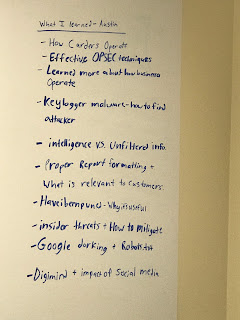 What I learned - Austin
- How Carders Operate
- Effective OPSEC techniques
- Learned more about how business
operate
- Keylogger malware - how to find
attacker
- intelligence vs. Unfiltered info.
- Proper Report formatting +
what is relevant to customers.
- Haveibeenpwned - why it's useful
- insider threats + How to Mitigate
- Google dorking + Robots.txt
- Digimind + impact of social media